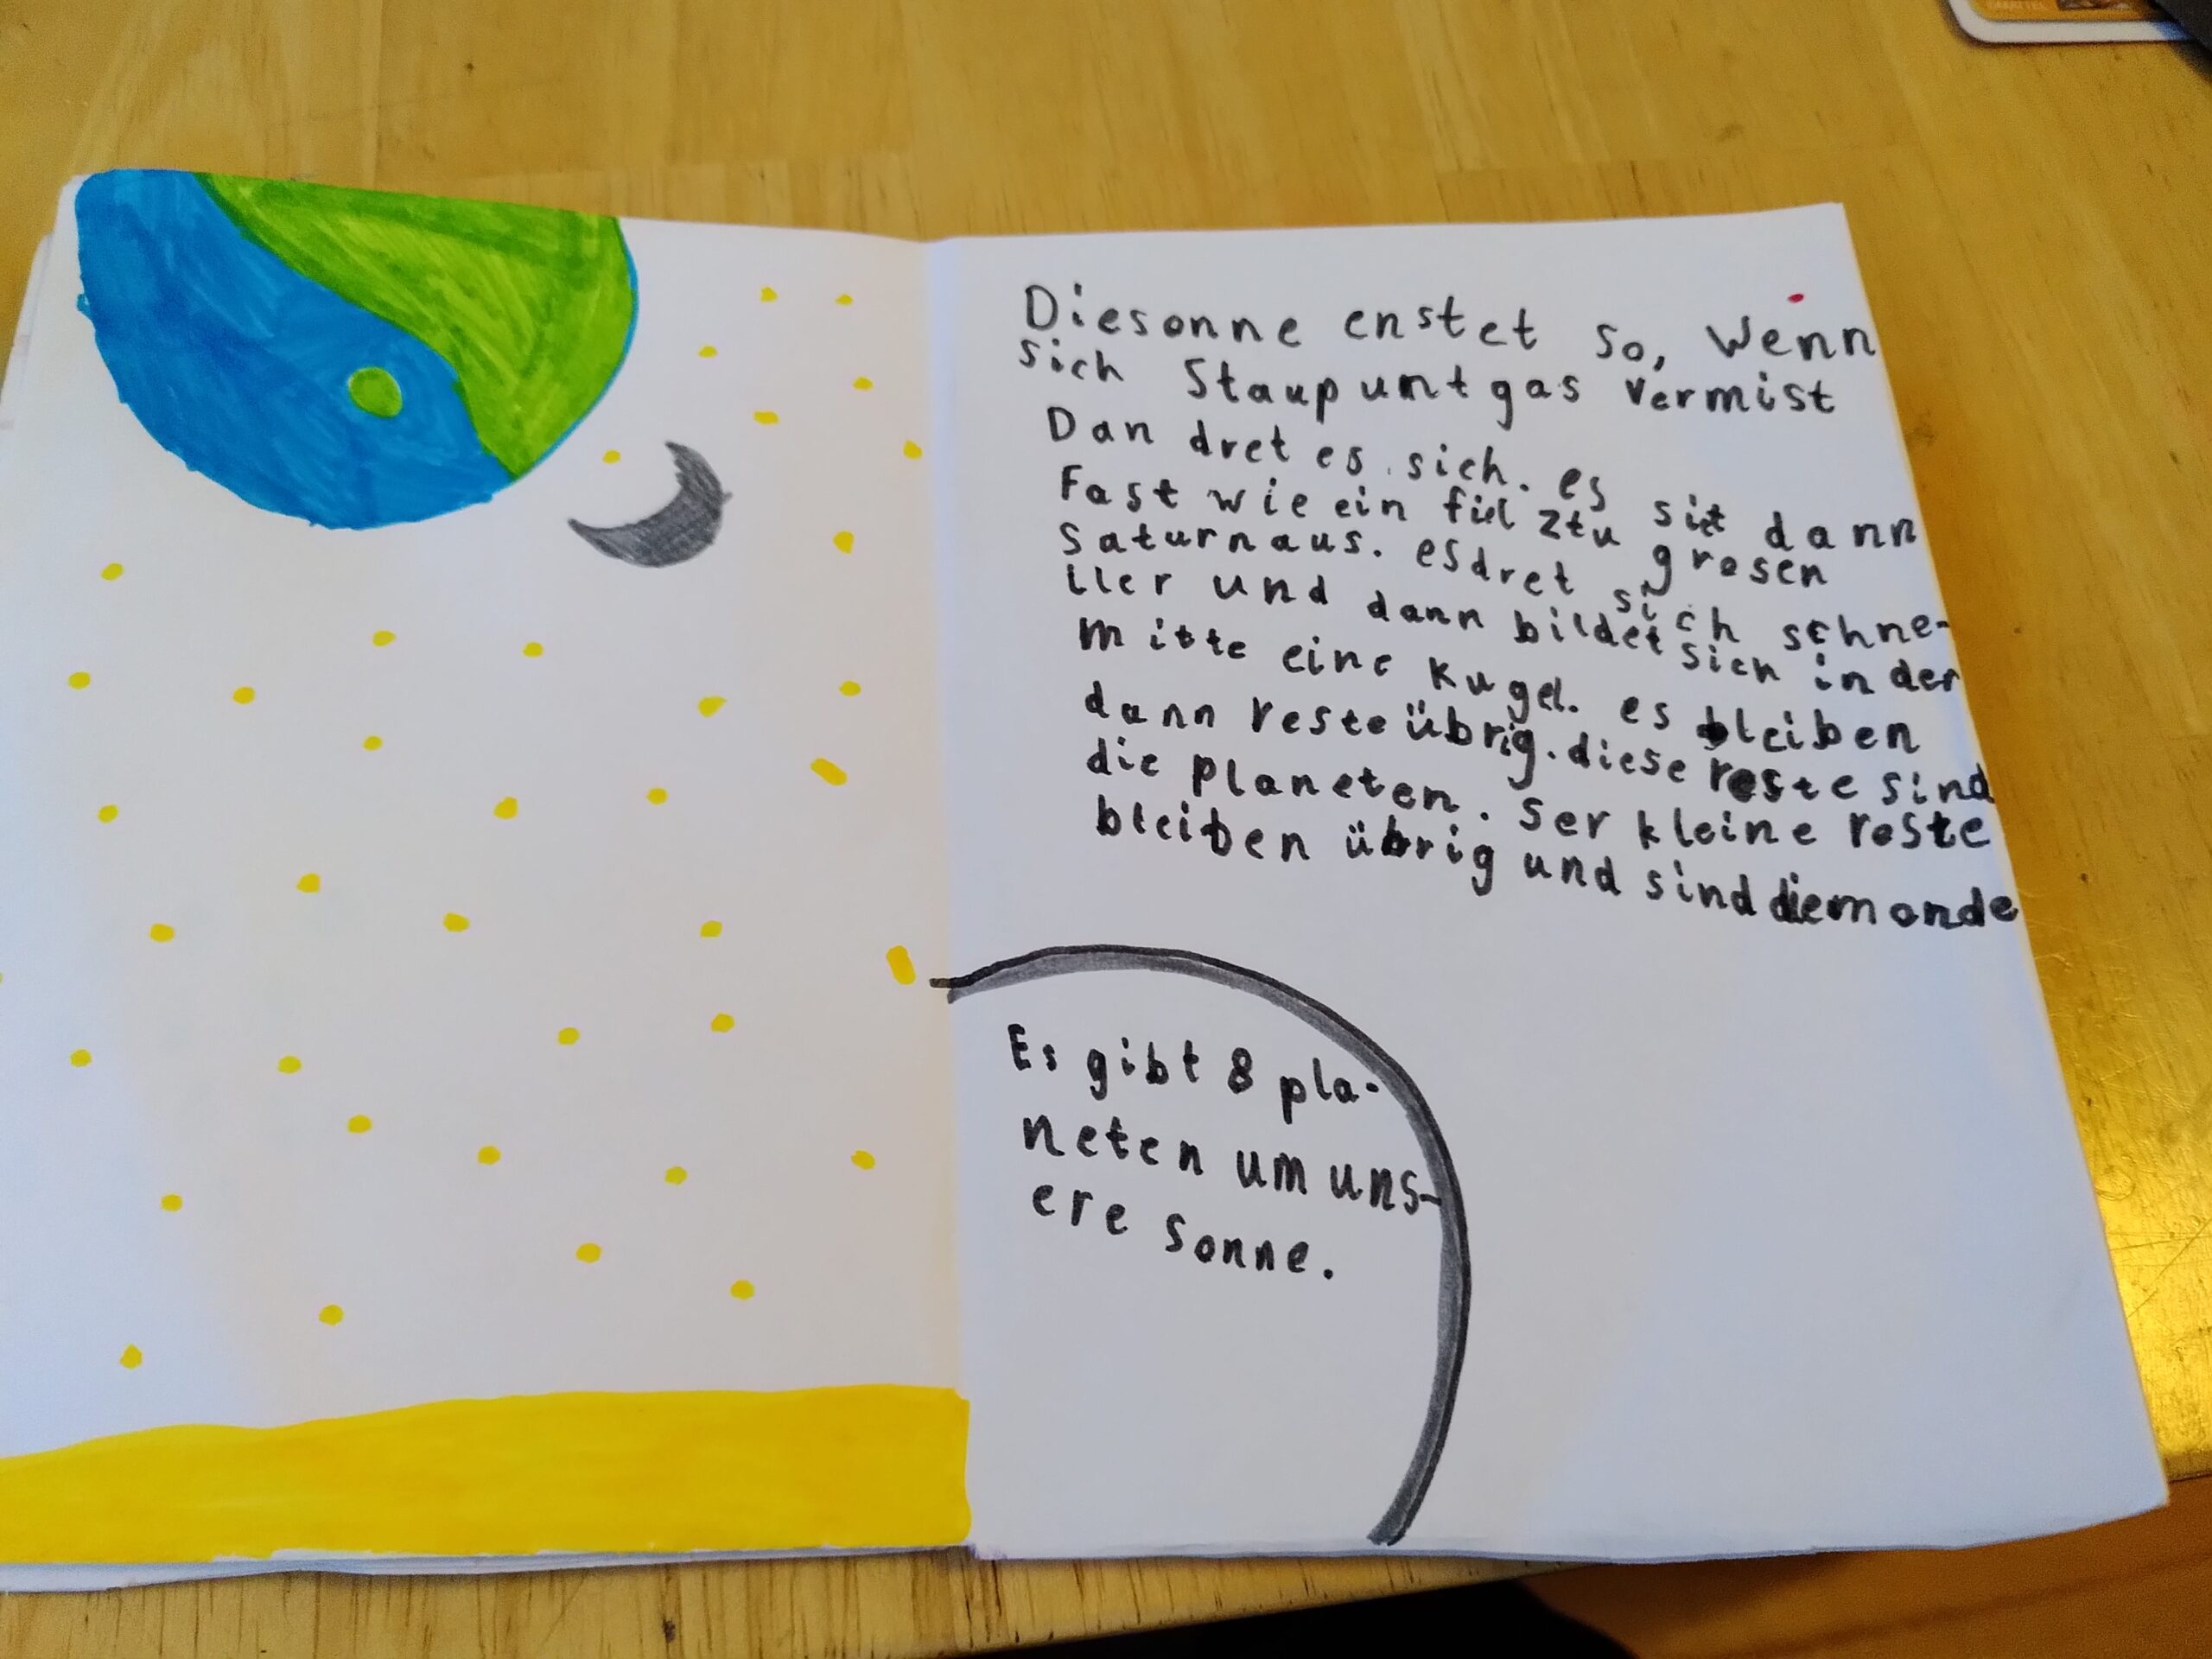 Diesonne enstet so, Wenn
sich Staup unt gas vermist
Dan dret es sich. es sit dann
Fast wie ein fiel ztu grosen
Saturnaus. esdret sich schne-
ller und dann bildet sich in der
mitte eine kugel. es bleiben
dann reste übrig. diese reste sind
die planeten. Ser kleine reste
bleiben übrig und sind diemonde
Es gibt 8 pla-
neten um uns-
ere Sonne.